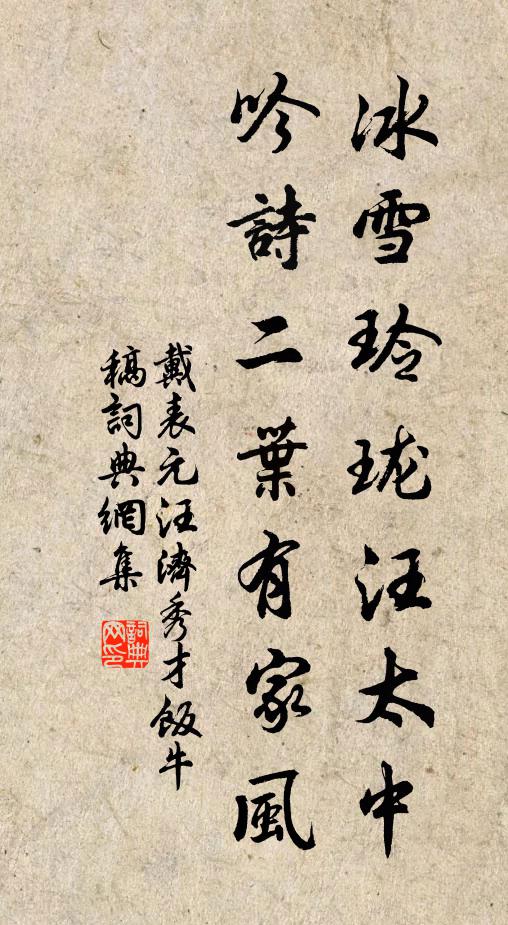 冰雪玲珑汪太中
吟詩二葉有家風
戴表元汪濟秀才飯牛
稿詞典網集
詞典网印